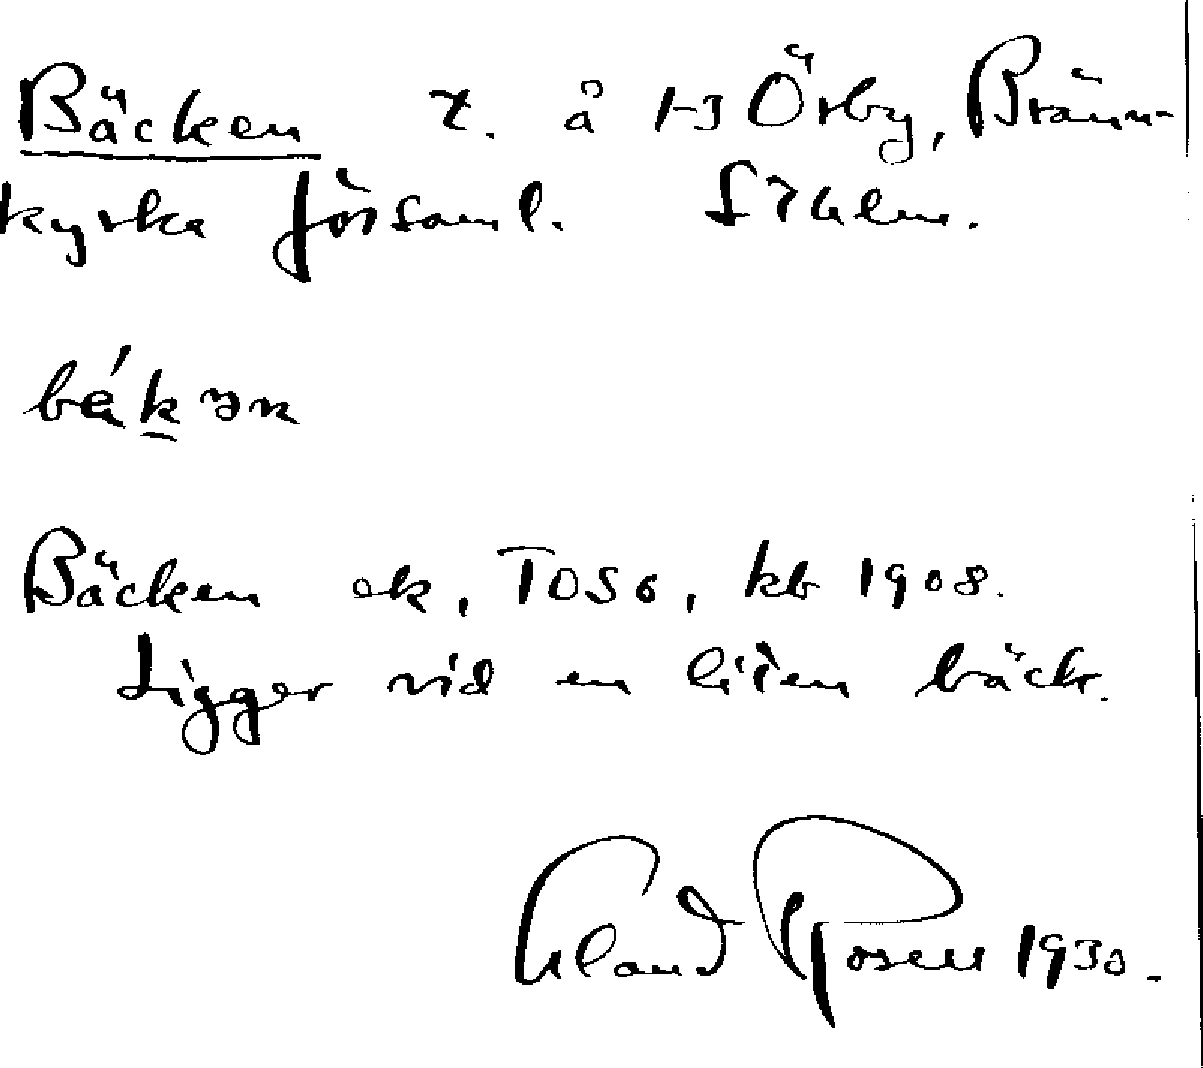 Bäcken t. å 1-3 Örby, Bränn-
kyrka församl. Sthlm.
bäkən
Bäcken ek, TOS6, kb 1908.
Ligger vid en liten bäck.
Rosell 1930.